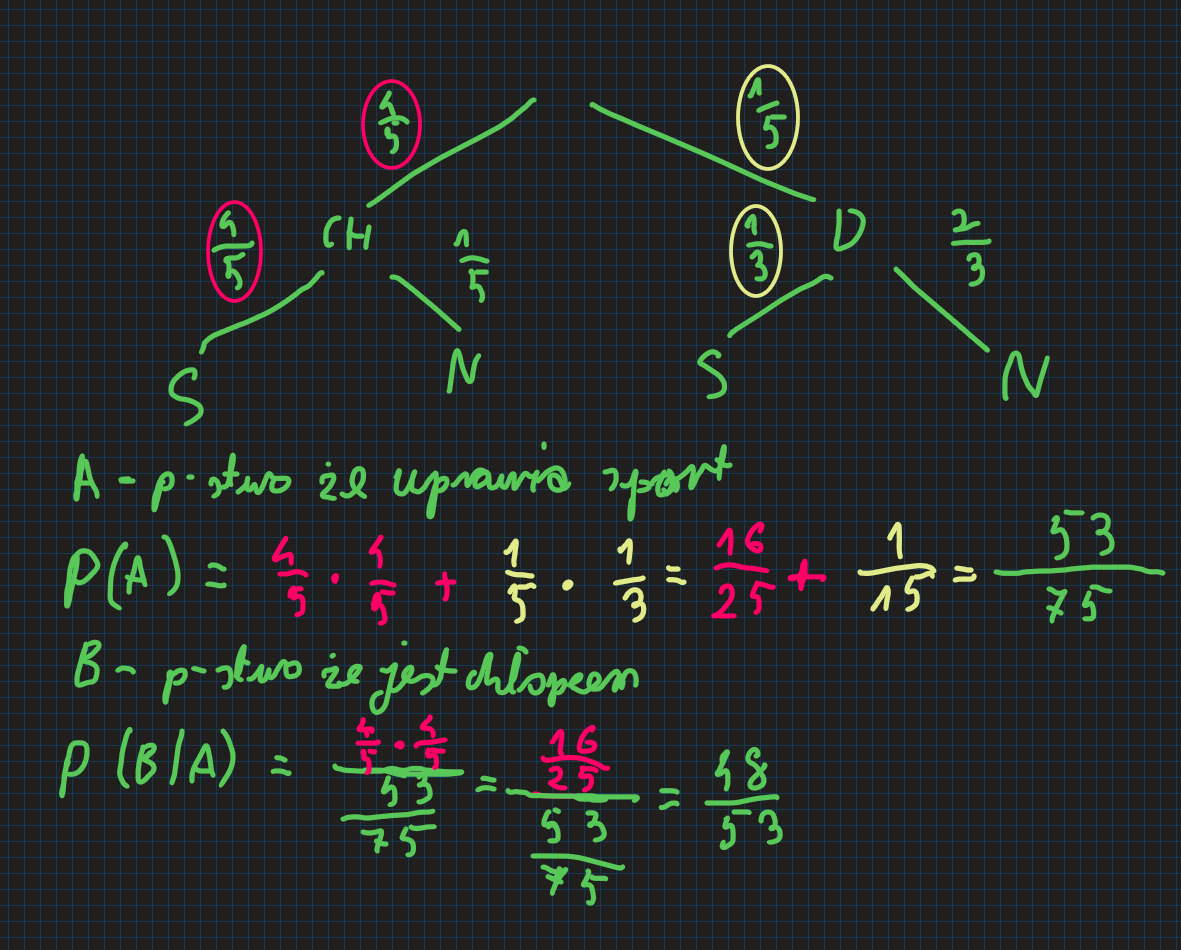 4/5 1/5
CH D
4/5 1/5 1/3 2/3
S N S N
A - p-stwo że uprawia sport
P(A) = 4/5 · 4/5 + 1/5 · 1/3 = 16/25 + 1/15 = 53/75
B - p-stwo że jest chłopcem
P(B/A) = (4/5 · 4/5)/(53/75) = (16/25)/(53/75) = 48/53